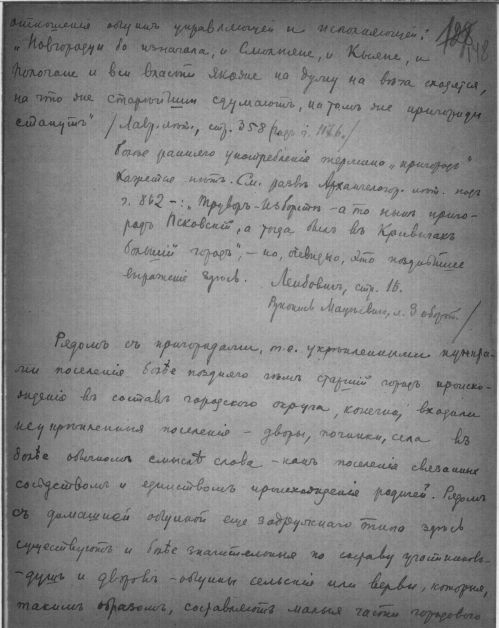 отношенiя общинъ управляющей и исполняющей:
"Новгородци бо изначала, и Смолняне, и Кыяне, и
Полочане и вся власти якоже на думу на вѣча сходятся,
на что же старѣйшии сдумаютъ, на томъ же пригороды
станутъ" /Лавр. лѣт., стр. 358 (подъ г. 1176)./
Болѣе ранняго употребленiя термина "пригородъ"
кажется нѣтъ. См. развѣ Архангелогор. лѣт. подъ
г. 862 -: "Труворъ - Изборскъ - а то нынѣ приго-
родъ Псковскiй, а тогда былъ въ Кривичахъ
большiй городъ", - но, очевидно, это позднѣйшее
выраженiе здѣсь. Лейбовичъ, стр. 16.
л. 3 оборот./
Рядомъ съ пригородами, т.е. укрѣпленными пунктa-
ми поселенiя болѣе поздняго чѣмъ старшiй городъ происхо-
жденiя въ составъ городского округа, конечно, входили
неукрѣпленныя поселенiя - дворы, починки, села въ
болѣе обычномъ смыслѣ слова - какъ поселенiя связанныхъ
сосѣдствомъ и единствомъ происхожденiя родичей. Рядомъ
съ домашней общиной еще задружнаго типа здѣсь
существуютъ и болѣе значительныя по составу участниковъ-
-душъ и дворовъ - общины сельскiя или верви, которыя,
такимъ образомъ, составляютъ малыя части городового